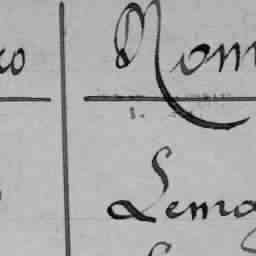 ro Nom
Lemo